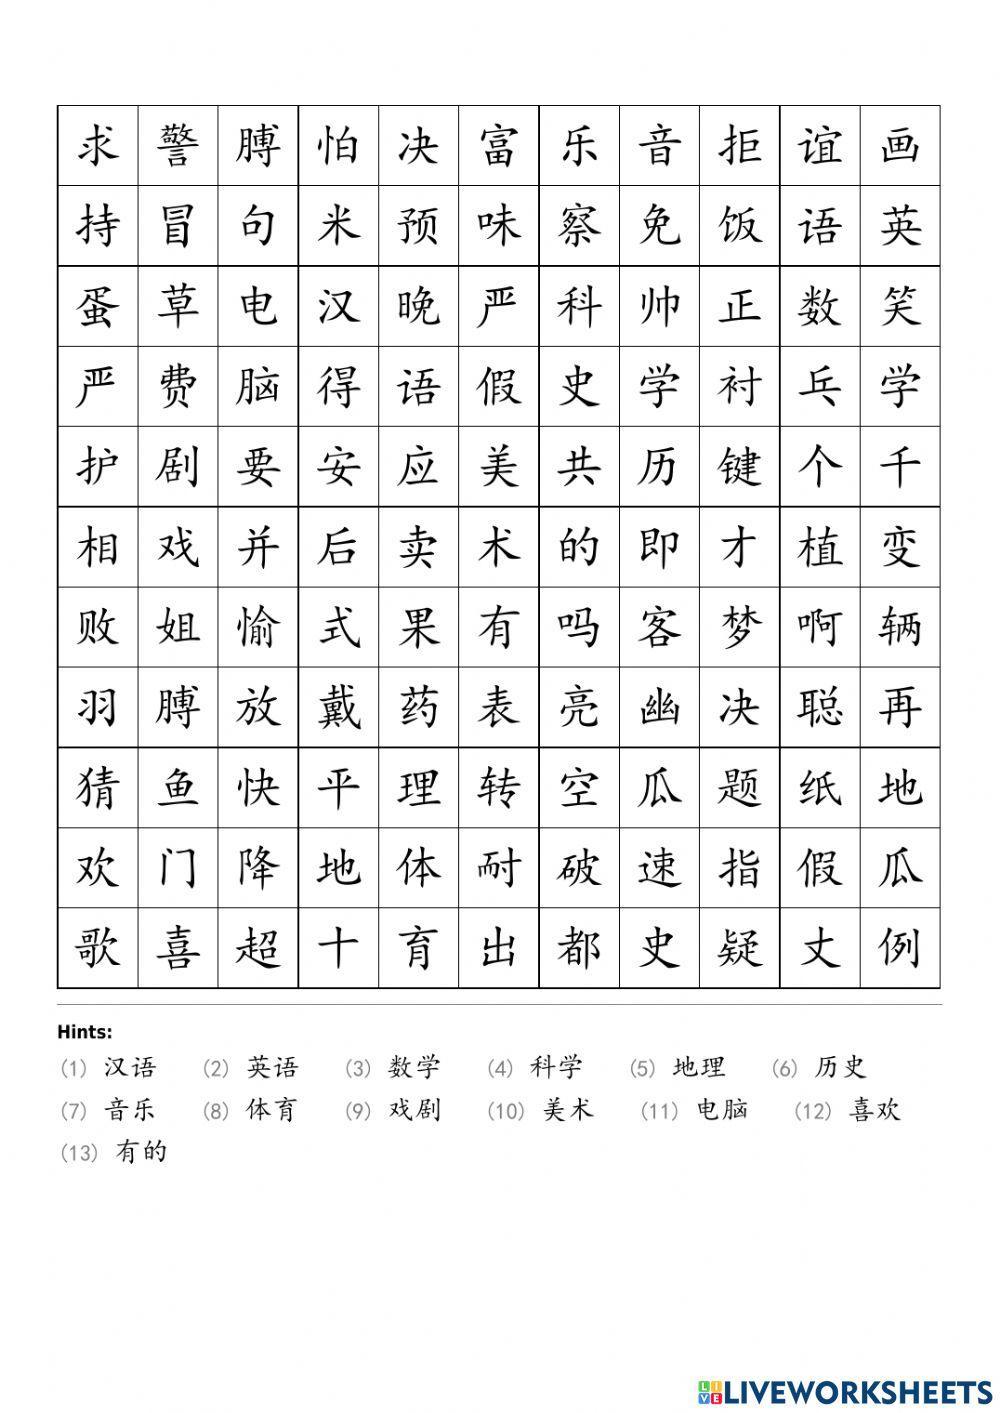 求 警 膊 怕 决 富 乐 音 拒 谊 画
持 冒 句 米 预 味 察 免 饭 语 英
蛋 草 电 汉 晚 严 科 帅 正 数 笑
严 费 脑 得 语 假 史 学 衬 乓 学
护 剧 要 安 应 美 共 历 键 个 千
相 戏 并 后 卖 术 的 即 才 植 变
败 姐 愉 式 果 有 吗 客 梦 啊 辆
羽 膊 放 戴 药 表 亮 幽 决 聪 再
猜 鱼 快 平 理 转 空 瓜 题 纸 地
欢 门 降 地 体 耐 破 速 指 假 瓜
歌 喜 超 十 育 出 都 史 疑 丈 例
Hints:
(1) 汉语 (2) 英语 (3) 数学 (4) 科学 (5) 地理 (6) 历史
(7) 音乐 (8) 体育 (9) 戏剧 (10) 美术 (11) 电脑 (12) 喜欢
(13) 有的
LIVE LIVEWORKSHEETS